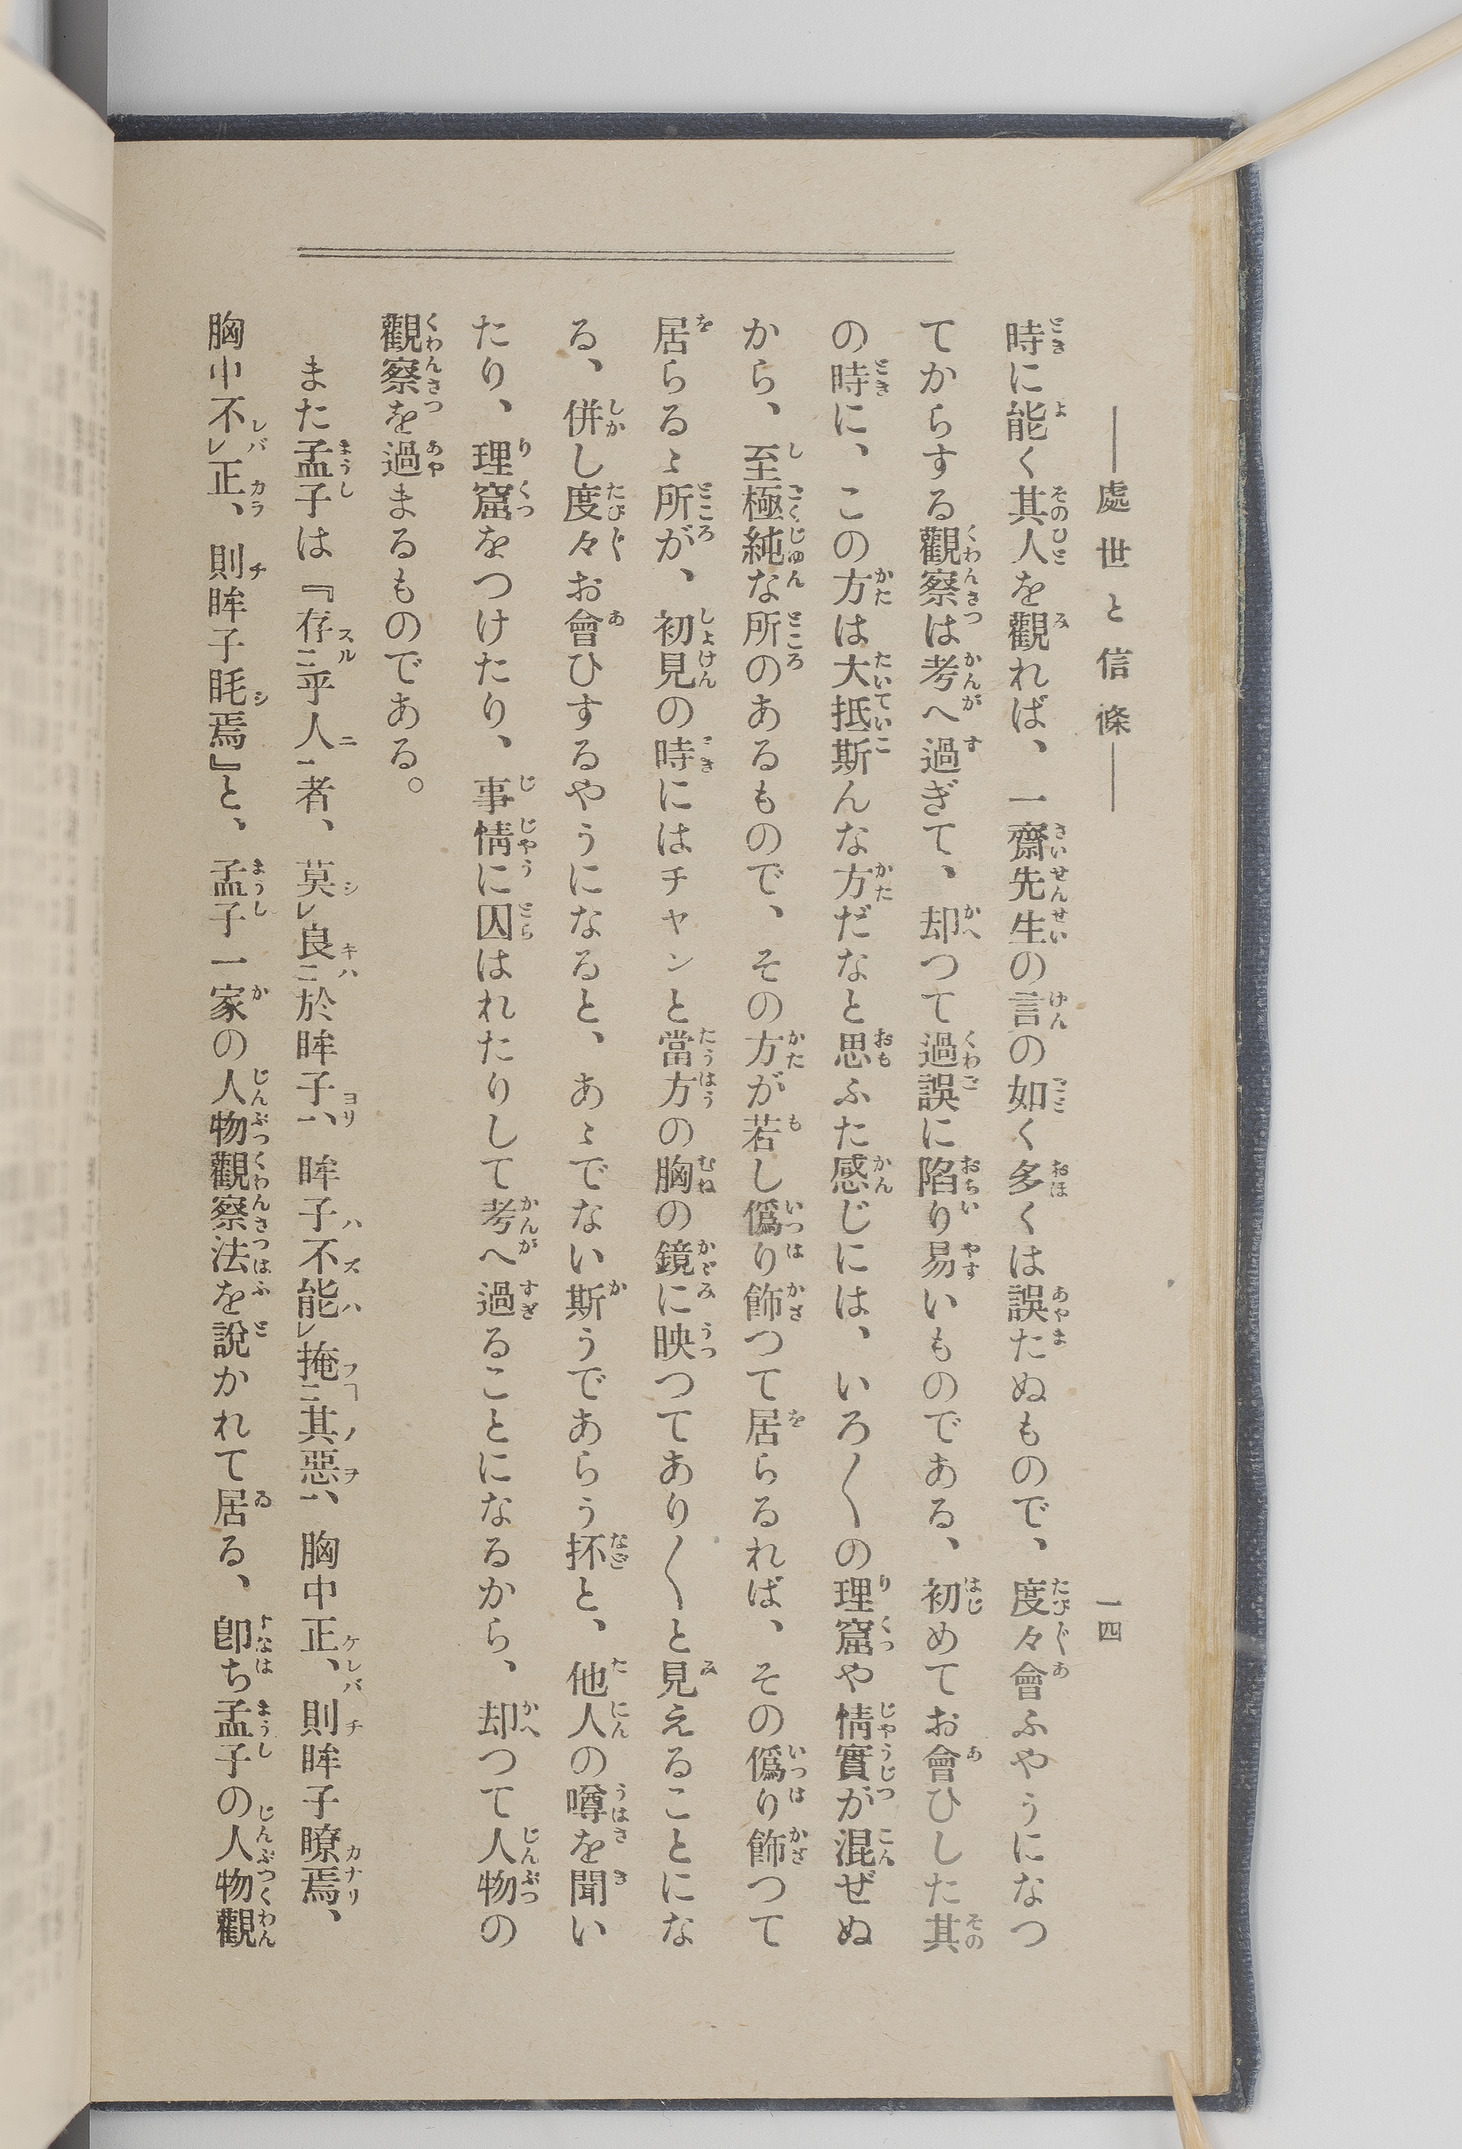 ――處世と信條――
一四
時に能く其人を觀れば、一齋先生の言の如く多くは誤たぬもので、度々會ふやうになつ
てからする觀察は考へ過ぎて、却つて過誤に陷り易いものである、初めてお會ひした其
の時に、この方は大抵斯んな方だなと思ふた感じには、いろ〱の理窟や情實が混ぜぬ
から、至極純な所のあるもので、その方が若し僞り飾つて居らるれば、その僞り飾つて
居らるゝ所が、初見の時にはチャンと當方の胸の鏡に映つてあり〱と見えることにな
る、併し度々お會ひするやうになると、あゝでない斯うであらう抔と、他人の噂を聞い
たり、理窟をつけたり、事情に囚はれたりして考へ過ることになるから、却つて人物の
觀察を過まるものである。
また孟子は『存㆓乎人㆒者、莫㆑良㆓於眸子㆒、眸子不能㆑掩㆓其惡㆒、胸中正、則眸子瞭焉、
胸中不㆑正、則眸子眊焉』と、孟子一家の人物觀察法を說かれて居る、卽ち孟子の人物觀